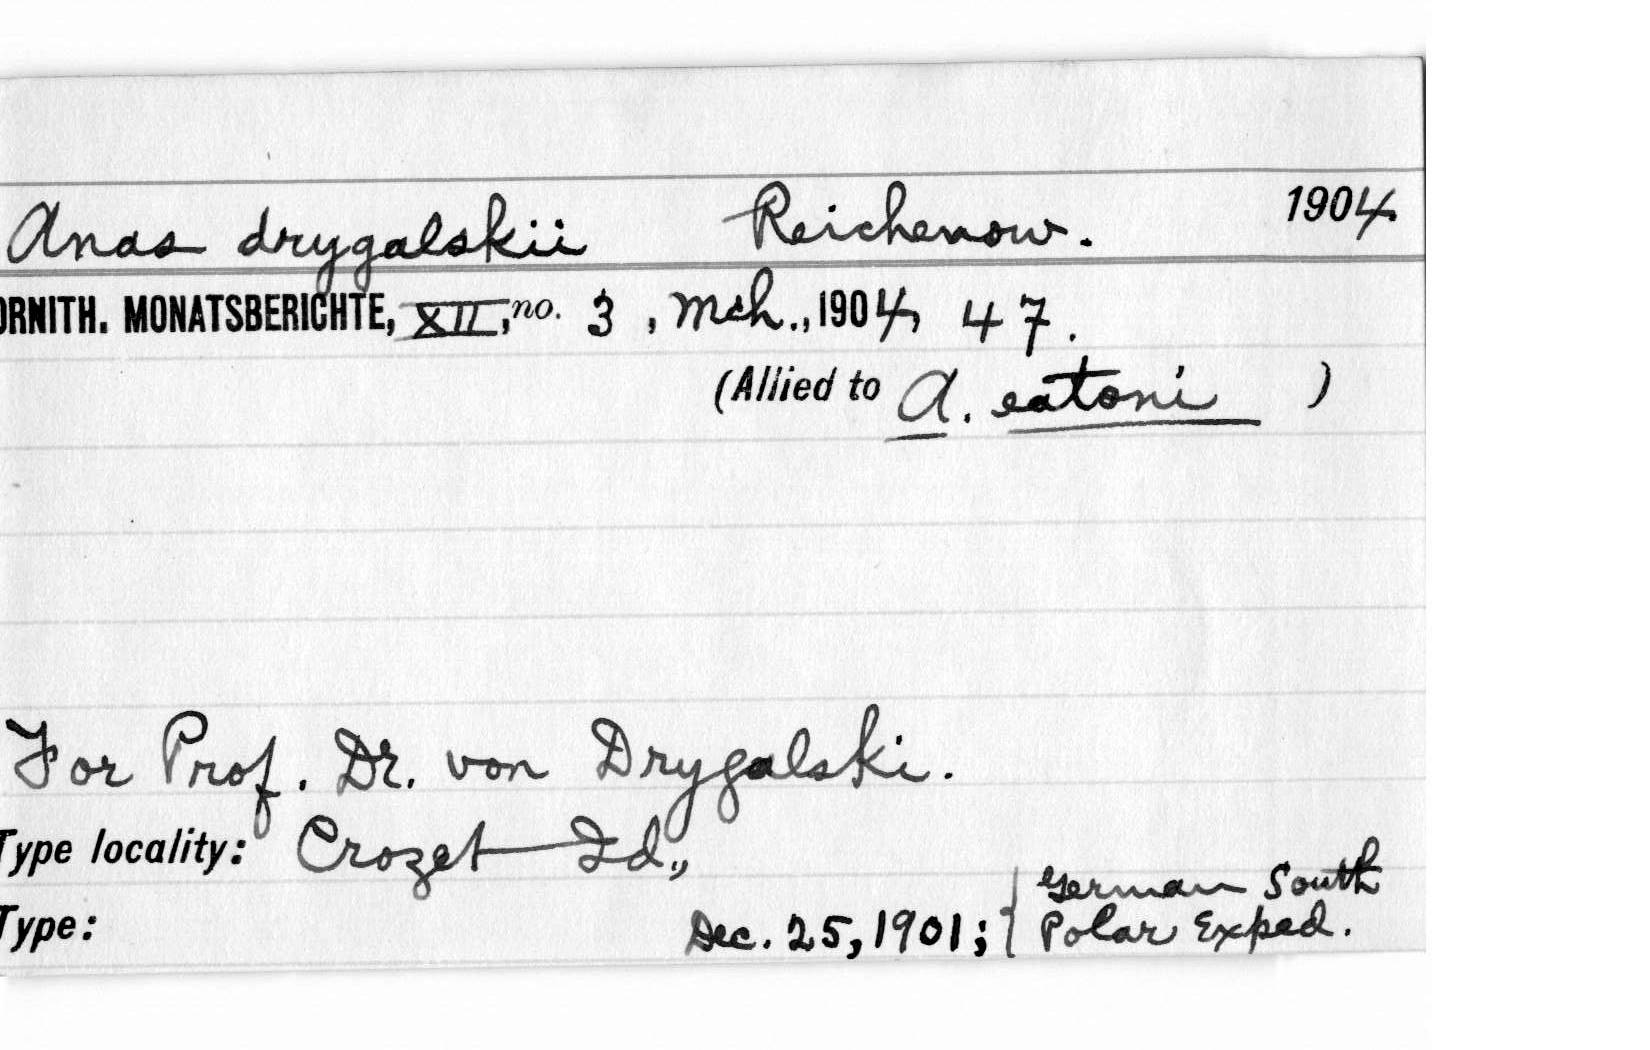 Anas drygalskii Reichenow. 1904.
ORNITH. MONATSBERICHTE, XII, no. 3, Mch., 1904, 47.
(Allied to A. eatoni )
For Prof. Dr. von Drygalski.
Type locality: Crozet Id.,
German South
Type: Dec. 25, 1901; { Polar Exped.